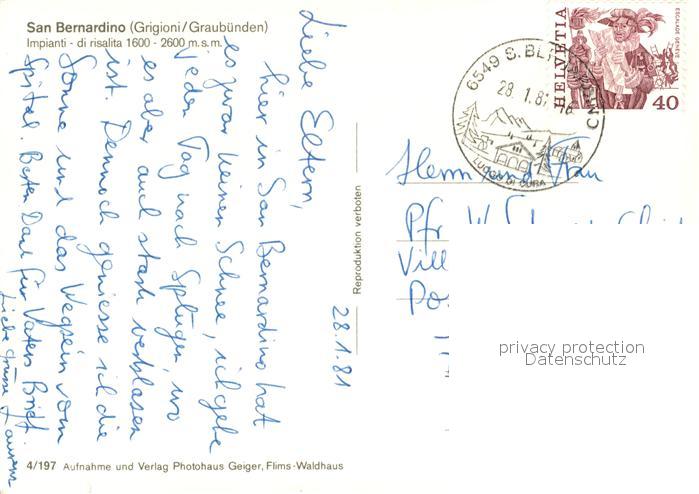 San Bernardino (Grigioni/Graubünden)
Impianti - di risalita 1600 - 2600 m.s.m.
Liebe Eltern,
hier in San Bernardino hat
es zwar keinen Schnee, ich gehe
jeden Tag nach Splügen, wo
es aber auch stark verblasen
ist. Dennoch geniesse ich die
Sonne und das Wegsein vom
Spital. Besten Dank für Vaters Brief.
Liebe Grüsse
28.1.81
4/197 Aufnahme und Verlag Photohaus Geiger, Flims-Waldhaus
Reproduktion verboten
6549 S. 
28.1.81
LUOGO DI CURA
HELVETIA
40
ESCALADE GENÈVE
Herrn und Frau
Pfr
Vill
privacy protection
Datenschutz